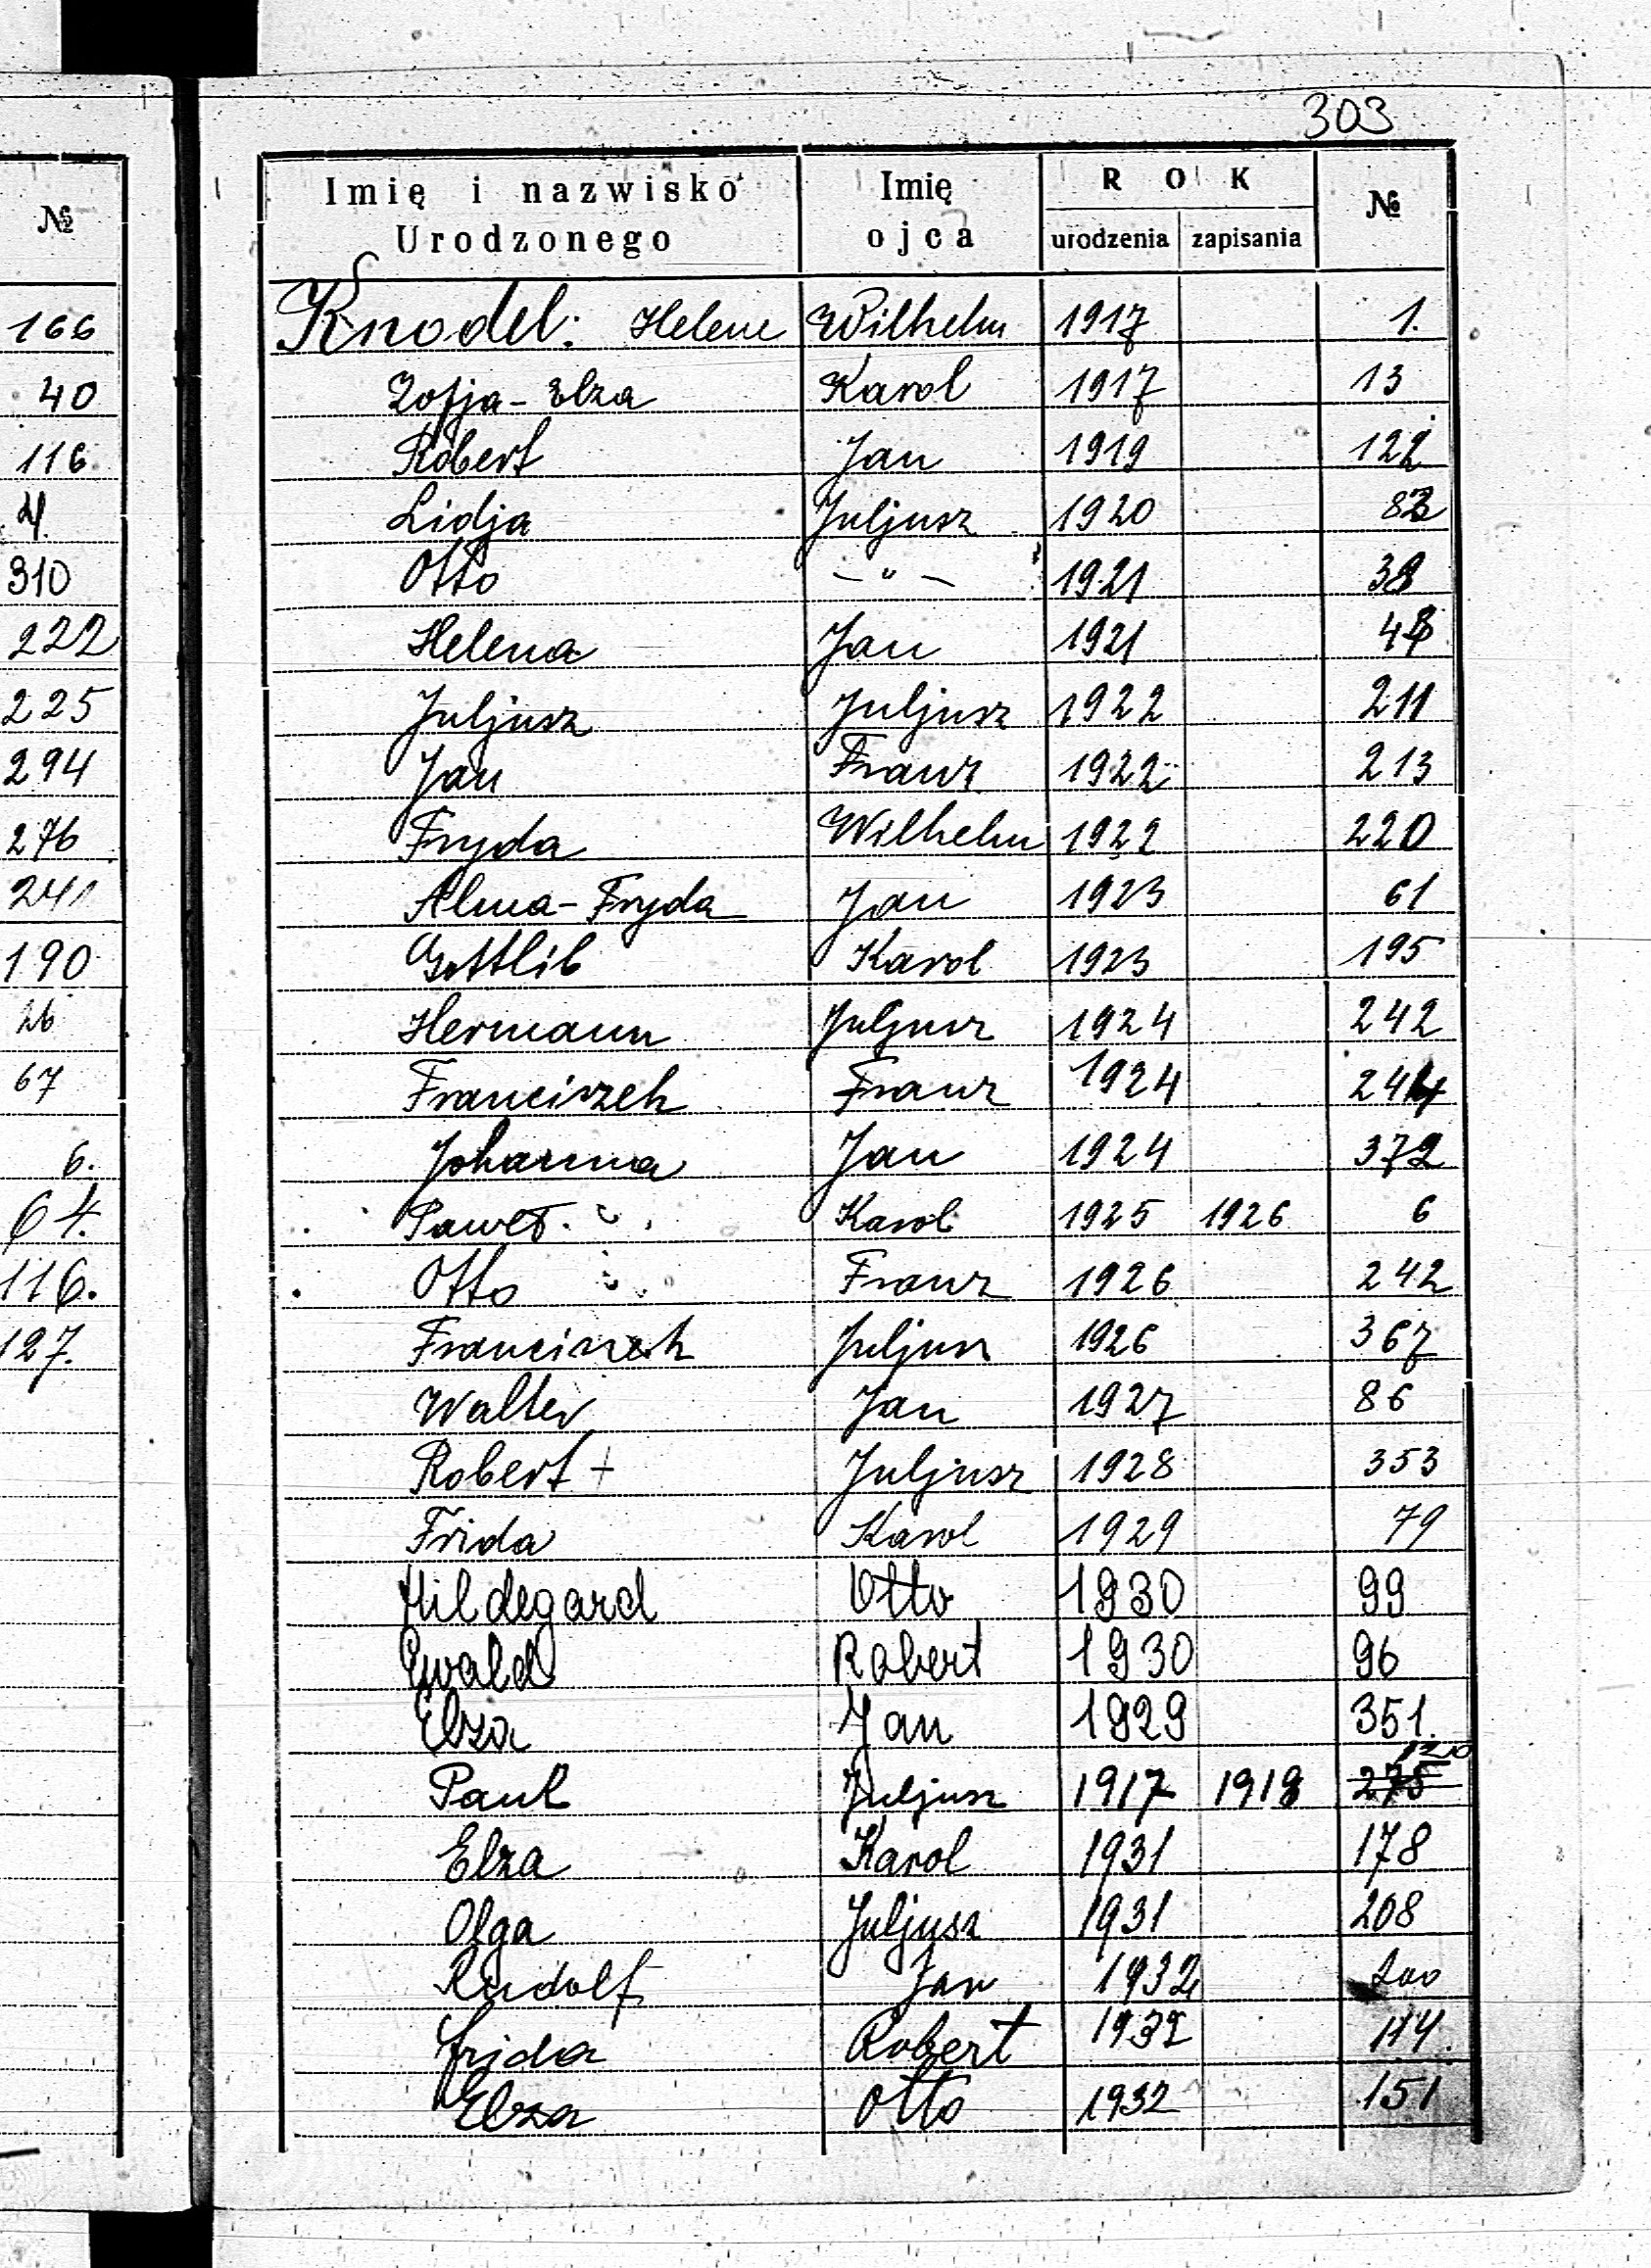 303
№
166
40
116
4.
310
222
225
294
276
241
190
26
67
6.
64.
116.
127.
Imię i nazwisko Urodzonego | Imię ojca | ROK urodzenia | zapisania | №
Knodel: Helene Wilhelm 1917 1.
Zofja-Elza Karol 1917 13
Robert Jan 1919 122
Lidja Juljusz 1920
Otto – " – 1921 38
Helena Jan 1921
Juljusz Juljusz 1922 211
Jan Franz 1922 213
Fryda Wilhelm 1922 220
Alma-Fryda Jan 1923 61
Gottlib Karol 1923 195
Hermann Juljusz 1924 242
Franciszek Franz 1924 244
Johanna Jan 1924 372
Paweł Karol 1925 1926 6
Otto Franz 1926 242
Franciszek Juljusz 1926 367
Walter Jan 1927 86
Robert + Juljusz 1928 353
Frida Karol 1929 79
Hildegard Otto 1930 99
Ewald Robert 1930 96
Elza Jan 1929 351.
Paul Juljusz 1917 1918 275
Elza Karol 1931 178
Olga Juljusz 1931 208
Rudolf Jan 1932 200
Frida Robert 1932 114.
Elza Otto 1932 151